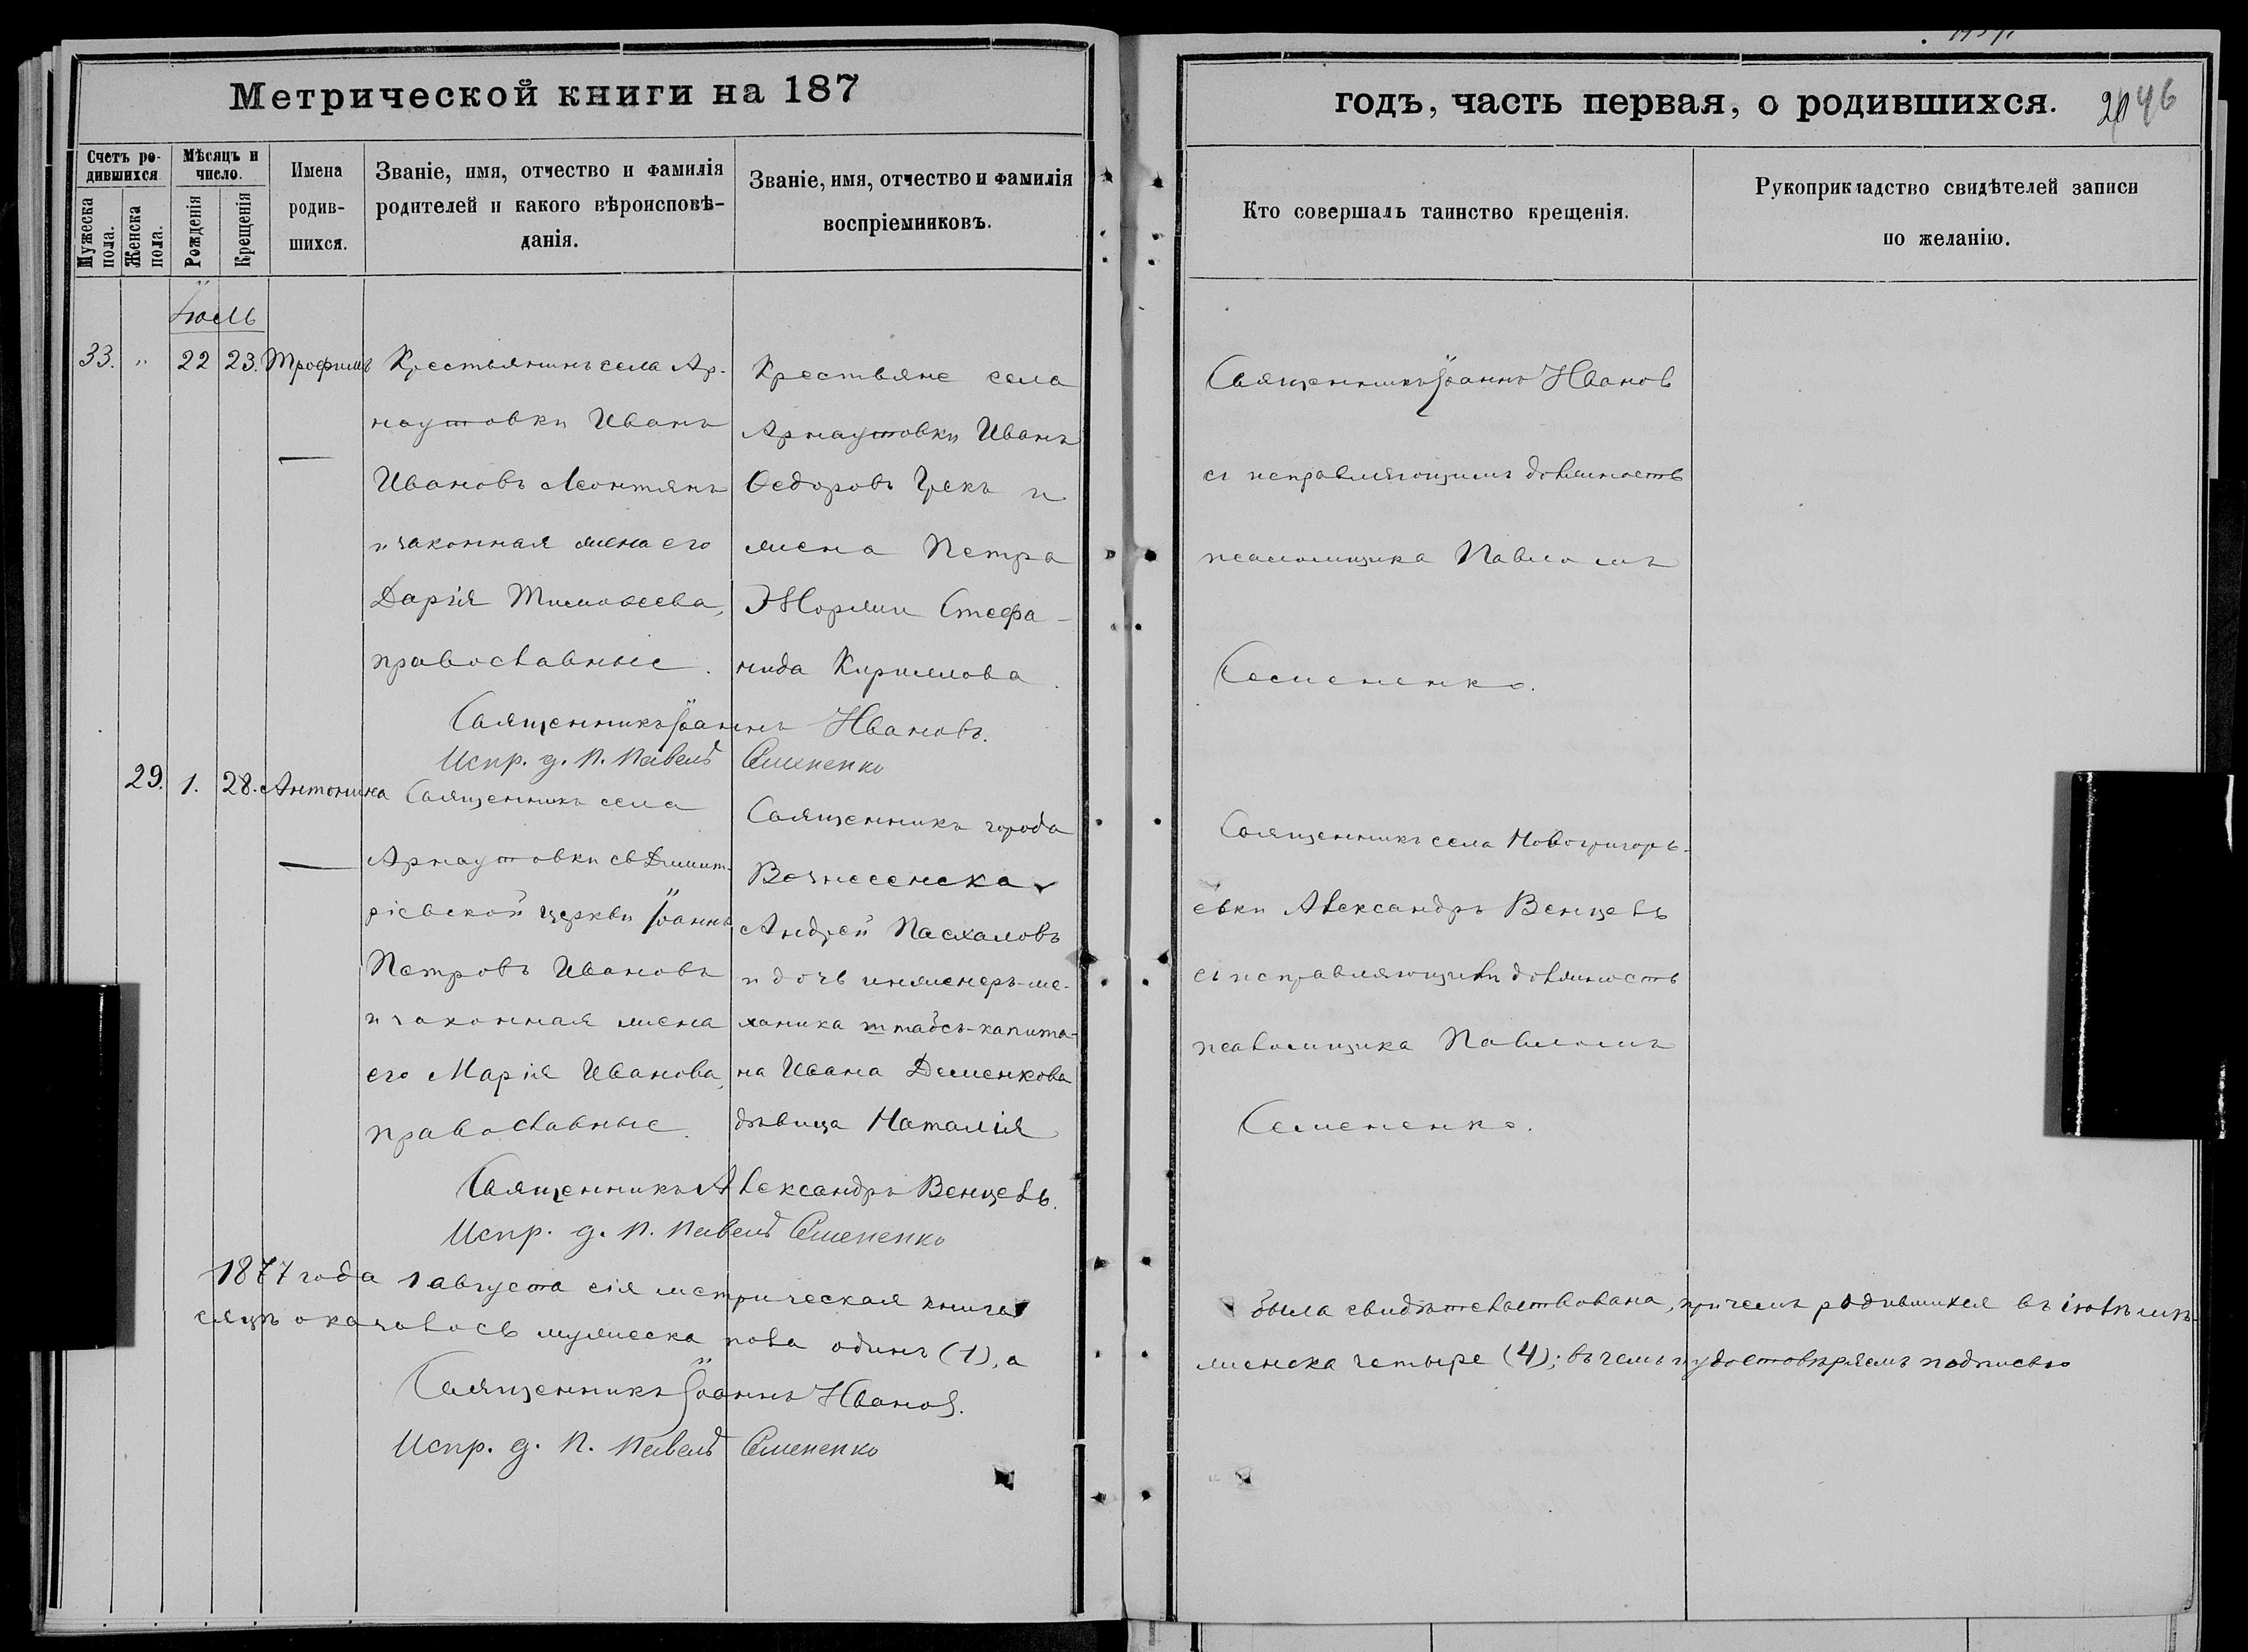 Метрической книги на 187
годъ, часть первая, о родившихся.
46
Счетъ ро-
дившихся
Мѣсяцъ и
число.
Мужеска
пола.
Женска
пола.
Рожденія
Крещенія
Имена
родив-
шихся.
Званіе, имя, отчество и фамилія
родителей и какого вѣроисповѣ-
данія.
Званіе, имя, отчество и фамилія
воспріемниковъ.
Кто совершалъ таинство крещенія.
Рукоприкладство свидѣтелей записи
по желанію.
Іюль
33. " 22 23. Трофимъ
Крестьянинъ села Ар-
наутовки Иванъ
Ивановъ Леонтянъ
и законная жена его
Дарія Тимоѳеева,
православные.
Крестьяне села
Арнаутовки Иванъ
Ѳедоровъ Грекъ и
жена Петра
Стефа-
нида Кириллова.
Священникъ Іоаннъ Иванов
съ исправляющимъ должность
псаломщика Павломъ
Семененко.
Священникъ Іоаннъ Ивановъ.
Испр. д. П. Павелъ Семененко
29. 1. 28. Антонина
Священникъ села
Арнаутовки св Димит-
ріевской церкви Іоаннъ
Петровъ Ивановъ
и законная жена
его Марія Иванова,
православные.
Священникъ города
Вознесенска
Андрей Пасхаловъ
и дочь инженеръ-ме-
ханика штабсъ-капита-
на Ивана Деменкова
дѣвица Наталія
Священникъ села Новогригорь-
евки Александръ Венцель
съ исправляющимъ должность
псаломщика Павломъ
Семененко.
Священникъ Александръ Венцель.
Испр. д. П. Павелъ Семененко
1877 года 1 августа сія метрическая книга была свидѣтельствована, причемъ родившихся въ іюлѣ мѣ-
сяцѣ оказалось мужеска пола одинъ (1), а женска четыре (4); въ чемъ и удостовѣряемъ подписью
Священникъ Іоаннъ Иванов.
Испр. д. П. Павелъ Семененко